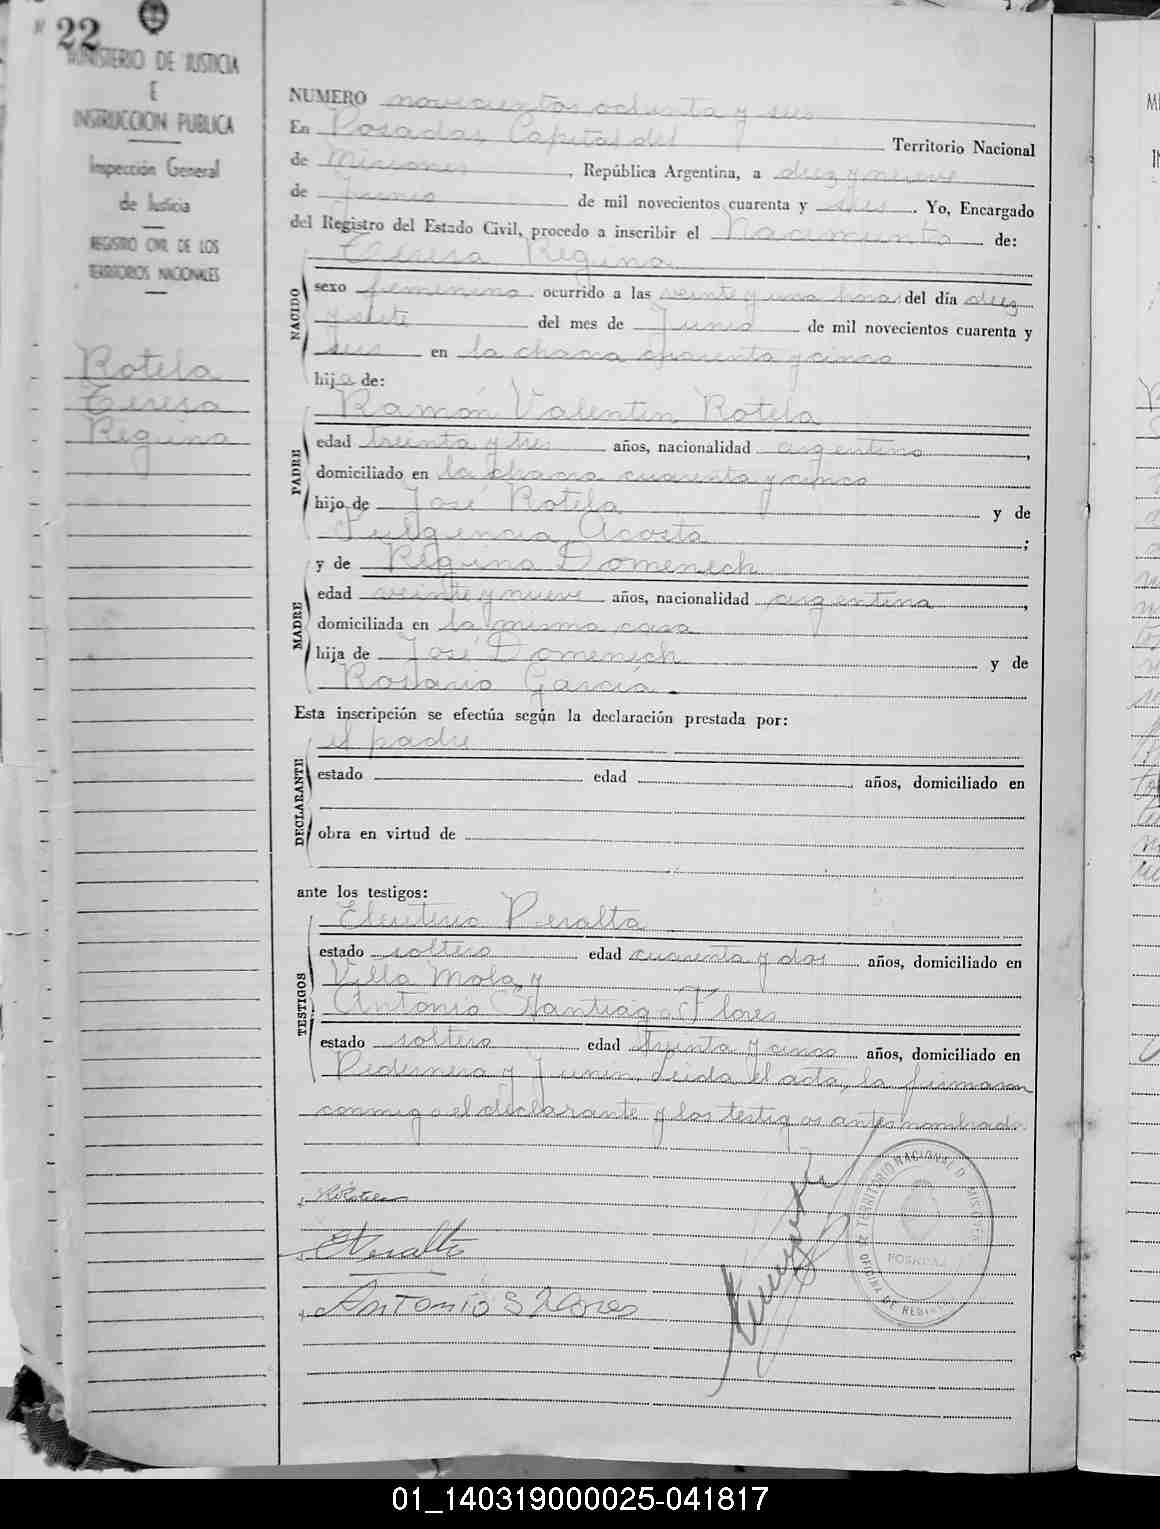 22
MINISTERIO DE JUSTICIA
E
INSTRUCCION PUBLICA
Inspección General
de Justicia
REGISTRO CIVIL DE LOS
TERRITORIOS NACIONALES
Rotela
Teresa
Regina
NUMERO novecientos ochenta y seis
En Posadas Capital del Territorio Nacional
de Misiones, República Argentina, a diez y nueve
de Junio de mil novecientos cuarenta y seis. Yo, Encargado
del Registro del Estado Civil, procedo a inscribir el Nacimiento de:
Teresa Regina
NACIDO
sexo femenino ocurrido a las veinte y una hora del día diez
y siete del mes de Junio de mil novecientos cuarenta y
seis en la chacra cuarenta y cinco
hija de:
Ramón Valentin Rotela
PADRE
edad treinta y tres años, nacionalidad argentino,
domiciliado en la chacra cuarenta y cinco
hijo de José Rotela y de
Fulgencia Acosta;
y de Regina Domenech
MADRE
edad veinte y nueve años, nacionalidad argentina,
domiciliada en la misma casa
hija de José Domenech y de
Rosario García.
Esta inscripción se efectúa según la declaración prestada por:
el padre
DECLARANTE
estado edad años, domiciliado en
obra en virtud de
ante los testigos:
Eleuterio Peralta
TESTIGOS
estado soltero edad cuarenta y dos años, domiciliado en
Villa Mola y
Antonio Santiago Flores
estado soltero edad treinta y cinco años, domiciliado en
Pedernera y Junin. Leida el acta, la firmaron
conmigo el declarante y los testigos antes nombrados
TERRITORIO NACIONAL D. MISIONES
POSADAS
OFICINA DE REGIS
EPeralta
ANTONIO S FLORES
01_140319000025-041817